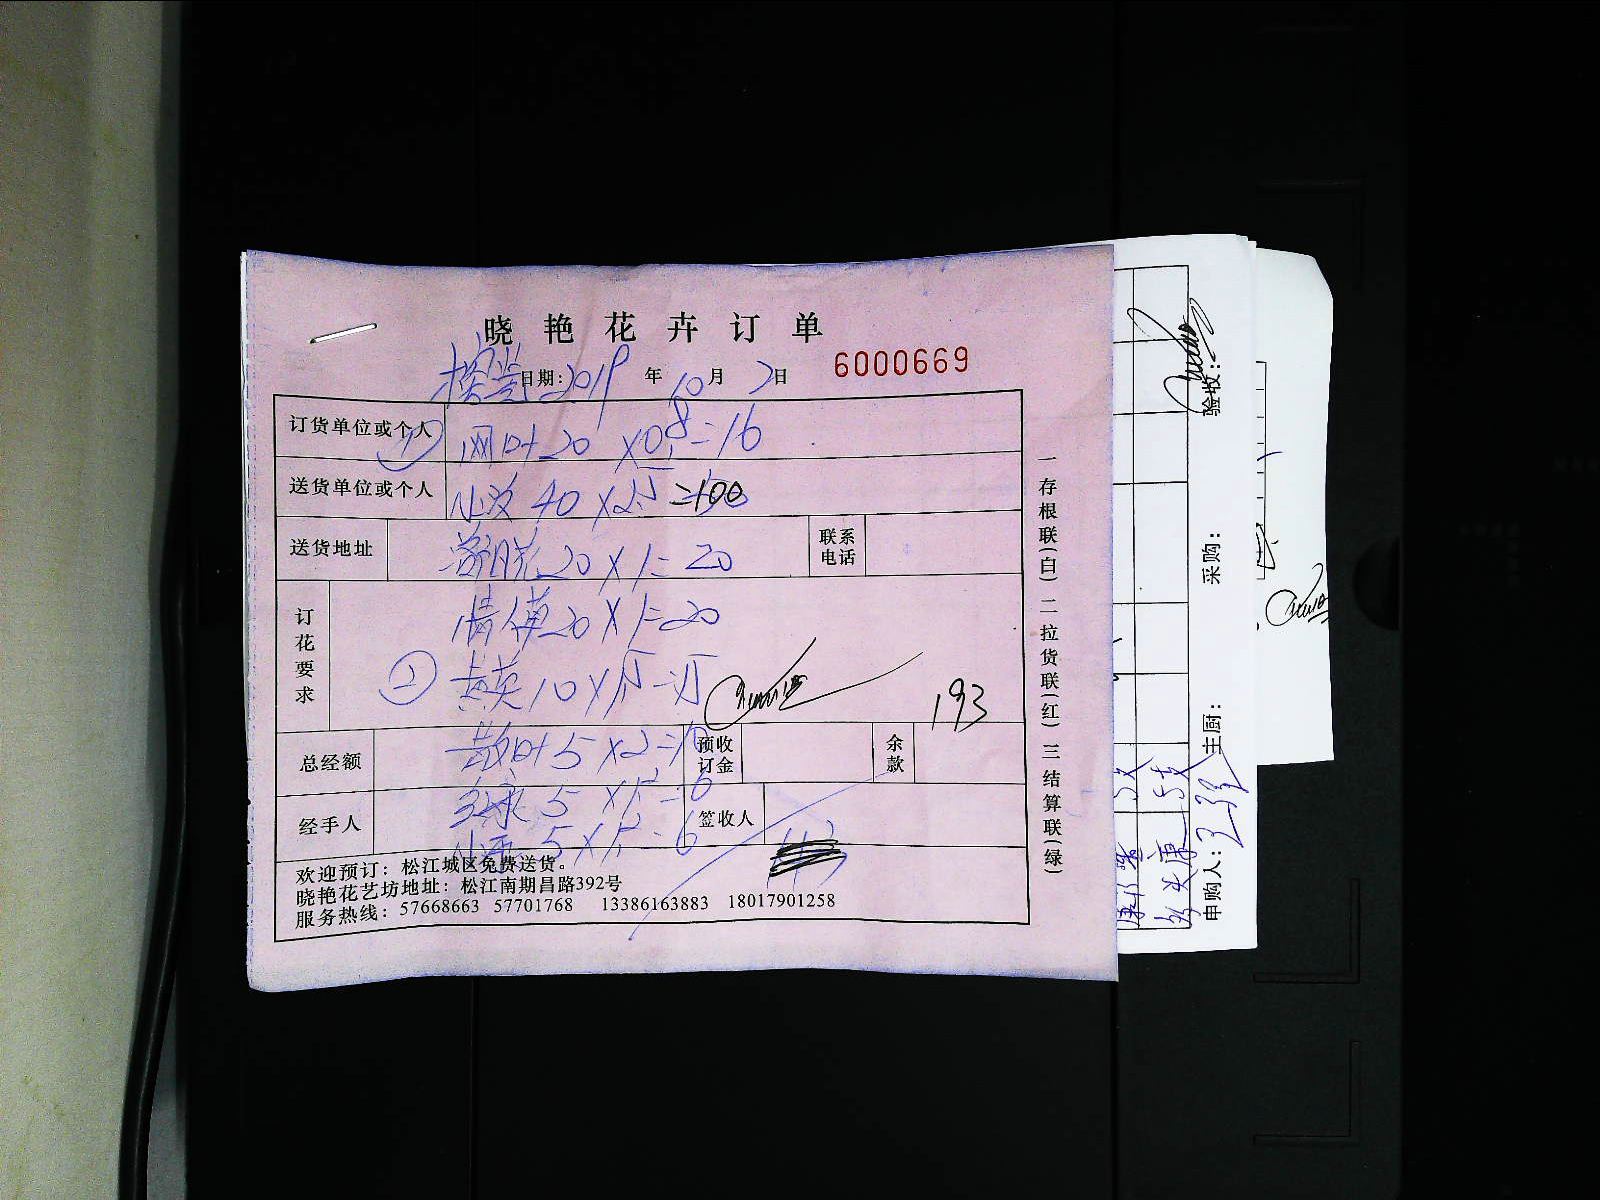 晓艳花卉订单
日期: 2019 年 10 月 2 日 6000669
订货单位或个人 网叶 20 X 0.8 = 16
送货单位或个人 40 X 2.5 = 100
送货地址 20 X 1 = 20 联系电话
订花要求 情 20 X 1 = 20
② 黄英 10 X 1.5 = 15
193
总经额 散叶 5 X 2 = 10 预收订金 余款
经手人 5 X 1.2 = 6 签收人
5 X 1.2 = 6
欢迎预订: 松江城区免费送货。
晓艳花艺坊地址: 松江南期昌路392号
服务热线: 57668663 57701768 13386163883 18017901258
一存根联(白) 二拉货联(红) 三结算联(绿)
申购人: 主厨: 采购: 验收: